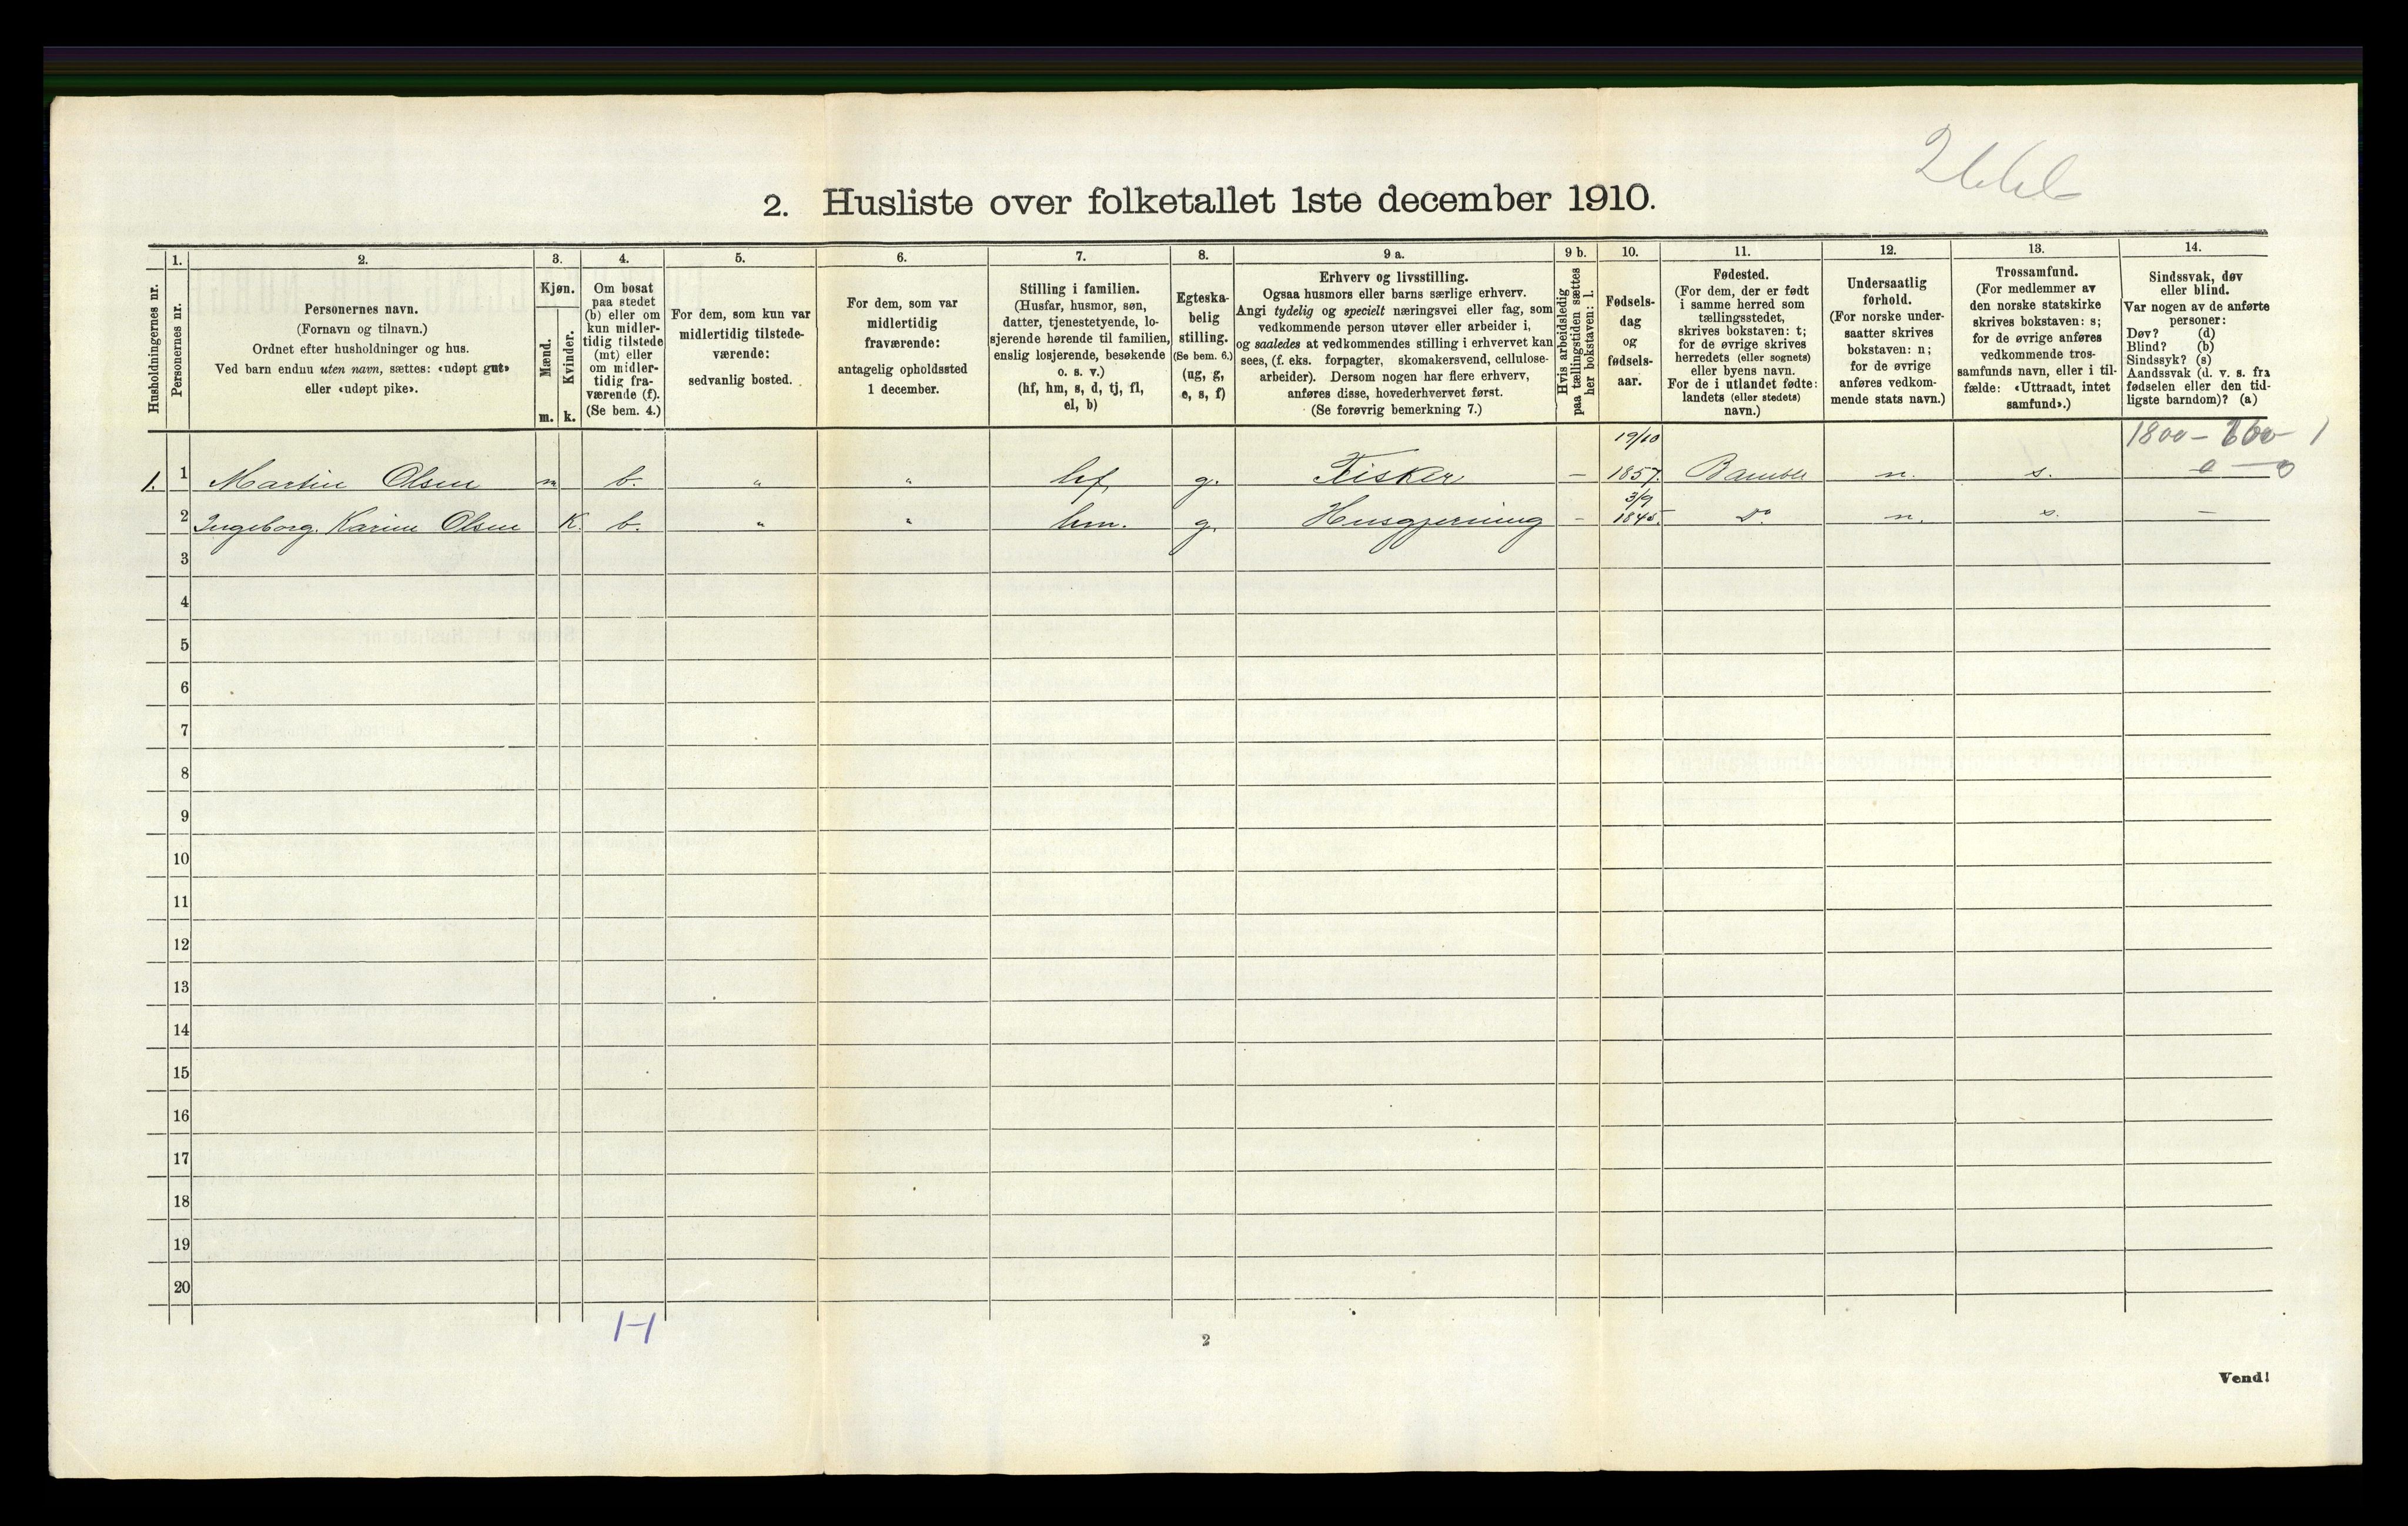 2. Husliste over folketallet 1ste december 1910.
Husholdningernes nr.
1.
Personernes nr.
2.
Personernes navn.
(Fornavn og tilnavn.)
Ordnet efter husholdninger og hus.
Ved barn endnu uten navn, sættes: «udøpt gut»
eller «udøpt pike».
3.
Kjøn.
Mænd.
Kvinder.
m. k.
4.
Om bosat
paa stedet
(b) eller om
kun midler-
tidig tilstede
(mt) eller
om midler-
tidig fra-
værende (f).
(Se bem. 4.)
5.
For dem, som kun var
midlertidig tilstede-
værende:
sedvanlig bosted.
6.
For dem, som var
midlertidig
fraværende:
antagelig opholdssted
1 december.
7.
Stilling i familien.
(Husfar, husmor, søn,
datter, tjenestetyende, lo-
sjerende hørende til familien,
enslig losjerende, besøkende
o. s. v.)
(hf, hm, s, d, tj, fl,
el, b)
8.
Egteska-
belig
stilling.
(Se bem. 6.)
(ug, g,
e, s, f)
9 a.
Erhverv og livsstilling.
Ogsaa husmors eller barns særlige erhverv.
Angi tydelig og specielt næringsvei eller fag, som
vedkommende person utøver eller arbeider i,
og saaledes at vedkommendes stilling i erhvervet kan
sees, (f. eks. forpagter, skomakersvend, cellulose-
arbeider). Dersom nogen har flere erhverv,
anføres disse, hovederhvervet først.
(Se forøvrig bemerkning 7.)
9 b.
Hvis arbeidsledig
paa tællingstiden sættes
her bokstaven: l.
10.
Fødsels-
dag
og
fødsels-
aar.
11.
Fødested.
(For dem, der er født
i samme herred som
tællingsstedet,
skrives bokstaven: t;
for de øvrige skrives
herredets (eller sognets)
eller byens navn.
For de i utlandet fødte:
landets (eller stedets)
navn.)
12.
Undersaatlig
forhold.
(For norske under-
saatter skrives
bokstaven: n;
for de øvrige
anføres vedkom-
mende stats navn.)
13.
Trossamfund.
(For medlemmer av
den norske statskirke
skrives bokstaven: s;
for de øvrige anføres
vedkommende tros-
samfunds navn, eller i til-
fælde: «Uttraadt, intet
samfund».)
14.
Sindssvak, døv
eller blind.
Var nogen av de anførte
personer:
Døv? (d)
Blind? (b)
Sindssyk? (s)
Aandssvak (d. v. s. fra
fødselen eller den tid-
ligste barndom)? (a)
19/10
1. 1 Martin Olsen m b. " " hf. g. Fisker – 1857. Bamble n. s.
3/9
2 Ingeborg. Karine Olsen K. b. " " hm. g. Husgjerning – 1845. Do n. s. –
3
4
5
6
7
8
9
10
11
12
13
14
15
16
17
18
19
20
2
Vend!